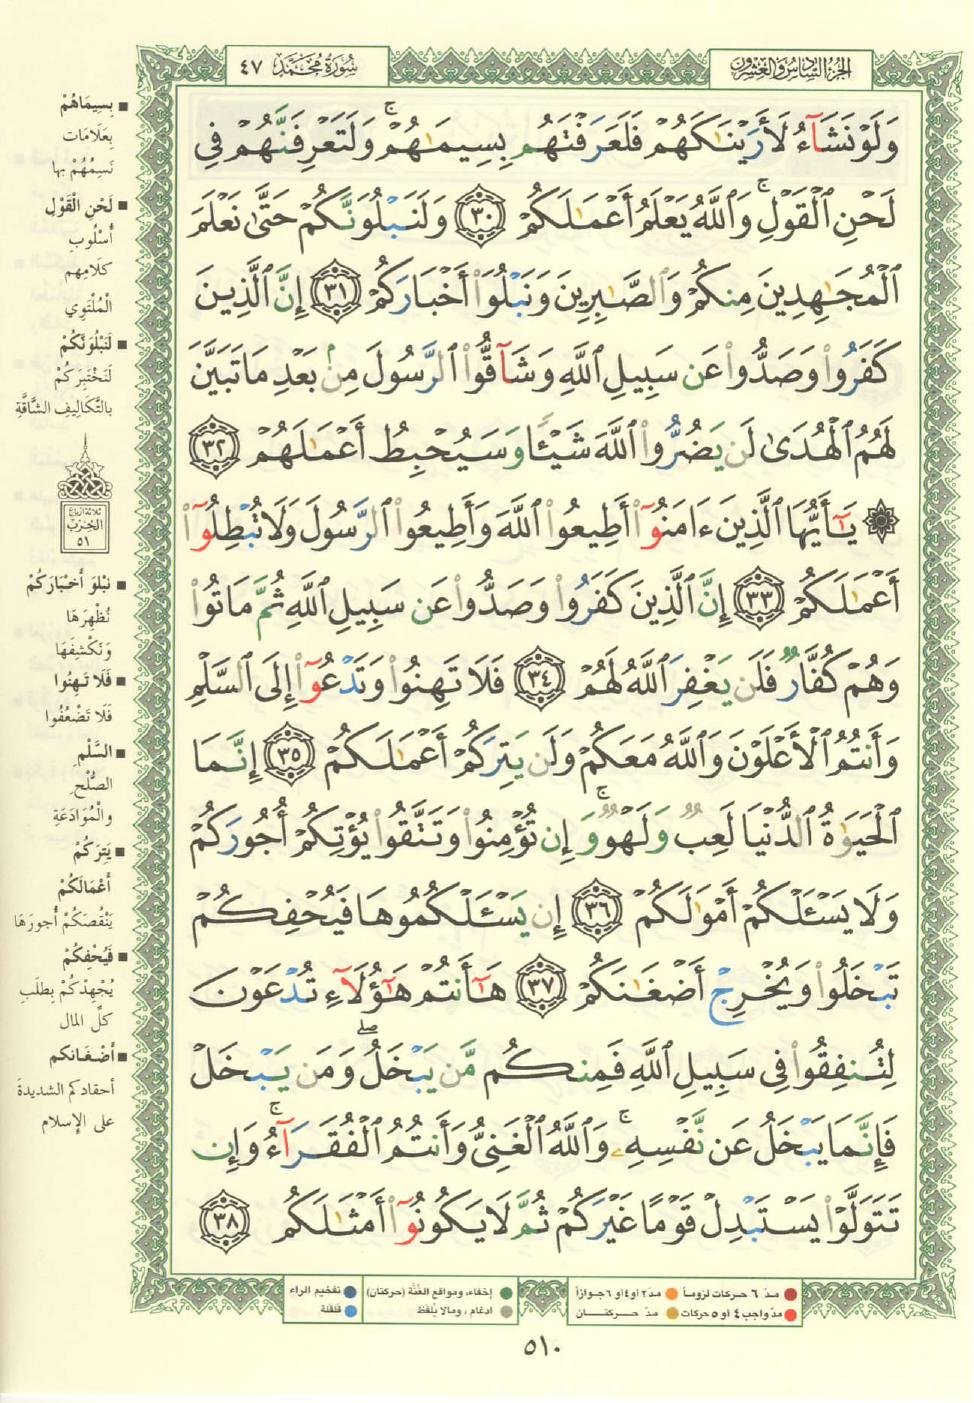 الجزء السادس والعشرون
سورة محمد ٤٧
وَلَوْ نَشَآءُ لَأَرَيْنَٰكَهُمْ فَلَعَرَفْتَهُم بِسِيمَٰهُمْ ۚ وَلَتَعْرِفَنَّهُمْ فِى
لَحْنِ ٱلْقَوْلِ ۚ وَٱللَّهُ يَعْلَمُ أَعْمَٰلَكُمْ ٣٠ وَلَنَبْلُوَنَّكُمْ حَتَّىٰ نَعْلَمَ
ٱلْمُجَٰهِدِينَ مِنكُمْ وَٱلصَّٰبِرِينَ وَنَبْلُوَا۟ أَخْبَارَكُمْ ٣١ إِنَّ ٱلَّذِينَ
كَفَرُوا۟ وَصَدُّوا۟ عَن سَبِيلِ ٱللَّهِ وَشَآقُّوا۟ ٱلرَّسُولَ مِنۢ بَعْدِ مَا تَبَيَّنَ
لَهُمُ ٱلْهُدَىٰ لَن يَضُرُّوا۟ ٱللَّهَ شَيْـًٔا وَسَيُحْبِطُ أَعْمَٰلَهُمْ ٣٢
۞ يَٰٓأَيُّهَا ٱلَّذِينَ ءَامَنُوٓا۟ أَطِيعُوا۟ ٱللَّهَ وَأَطِيعُوا۟ ٱلرَّسُولَ وَلَا تُبْطِلُوٓا۟
أَعْمَٰلَكُمْ ٣٣ إِنَّ ٱلَّذِينَ كَفَرُوا۟ وَصَدُّوا۟ عَن سَبِيلِ ٱللَّهِ ثُمَّ مَاتُوا۟
وَهُمْ كُفَّارٌ فَلَن يَغْفِرَ ٱللَّهُ لَهُمْ ٣٤ فَلَا تَهِنُوا۟ وَتَدْعُوٓا۟ إِلَى ٱلسَّلْمِ
وَأَنتُمُ ٱلْأَعْلَوْنَ وَٱللَّهُ مَعَكُمْ وَلَن يَتِرَكُمْ أَعْمَٰلَكُمْ ٣٥ إِنَّمَا
ٱلْحَيَوٰةُ ٱلدُّنْيَا لَعِبٌ وَلَهْوٌ ۚ وَإِن تُؤْمِنُوا۟ وَتَتَّقُوا۟ يُؤْتِكُمْ أُجُورَكُمْ
وَلَا يَسْـَٔلْكُمْ أَمْوَٰلَكُمْ ٣٦ إِن يَسْـَٔلْكُمُوهَا فَيُحْفِكُمْ
تَبْخَلُوا۟ وَيُخْرِجْ أَضْغَٰنَكُمْ ٣٧ هَٰٓأَنتُمْ هَٰٓؤُلَآءِ تُدْعَوْنَ
لِتُنفِقُوا۟ فِى سَبِيلِ ٱللَّهِ فَمِنكُم مَّن يَبْخَلُ ۖ وَمَن يَبْخَلْ
فَإِنَّمَا يَبْخَلُ عَن نَّفْسِهِۦ ۚ وَٱللَّهُ ٱلْغَنِىُّ وَأَنتُمُ ٱلْفُقَرَآءُ ۚ وَإِن
تَتَوَلَّوْا۟ يَسْتَبْدِلْ قَوْمًا غَيْرَكُمْ ثُمَّ لَا يَكُونُوٓا۟ أَمْثَٰلَكُم ٣٨
■ بِسِيمَاهُمْ
بِعَلَامَات
نَسِمُهُمْ بها
■ لَحْنِ الْقَوْلِ
أُسْلُوبِ
كلَامِهِم
الْمُلْتَوِي
■ لَنَبْلُوَنَّكُمْ
لَنَخْتَبِرَكُمْ
بالتَّكَالِيفِ الشَّاقَّةِ
ثلاثة أرباع
الحزب
٥١
■ نَبْلُوَ أَخْبَارَكُمْ
نُظْهِرَهَا
وَنَكْشِفَهَا
■ فَلَا تَهِنُوا
فَلَا تَضْعُفُوا
■ السَّلْمِ
الصُّلْحِ
والْمُوَادَعَةِ
■ يَتِرَكُمْ
أَعْمَالَكُمْ
يَنْقُصَكُمْ أُجورَهَا
■ فَيُحْفِكُمْ
يُجْهِدْكُمْ بِطَلَبِ
كلِّ المال
■ أَضْغَانَكم
أحقادكم الشديدة
على الإسلام
مدّ ٦ حركات لزوماً مدّ ٢ أو ٤ أو ٦ جوازاً
مدّ واجب ٤ أو ٥ حركات مدّ حركتان
إخفاء، ومواقع الغُنَّة (حركتان) تفخيم الراء
ادغام، وما لا يُلفظ قلقلة
٥١٠